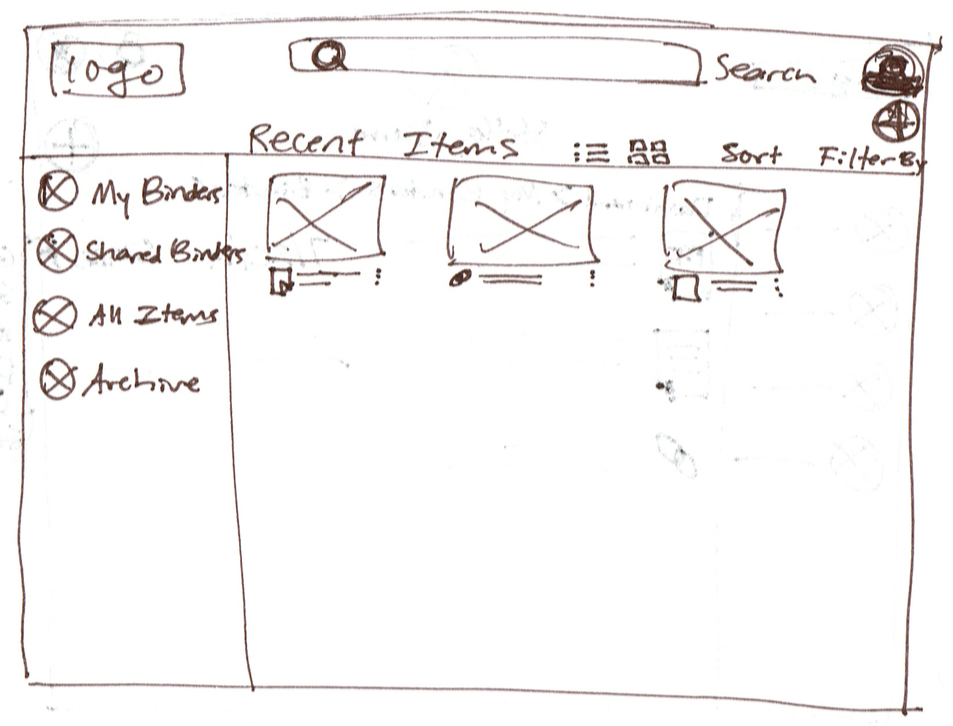 Logo
Search
Recent Items
Sort
Filter By
My Binders
Shared Binders
All Items
Archive